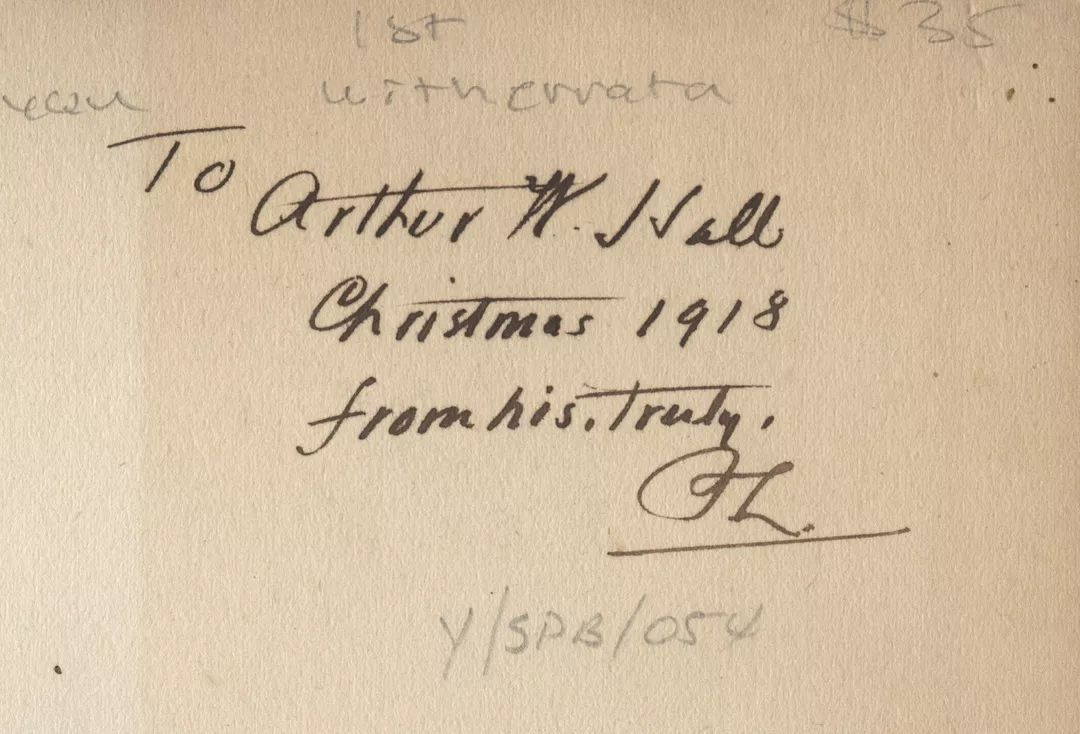 1st $35
with errata
To
Arthur W. Hall
Christmas 1918
from his. truly.
Y/SPB/054